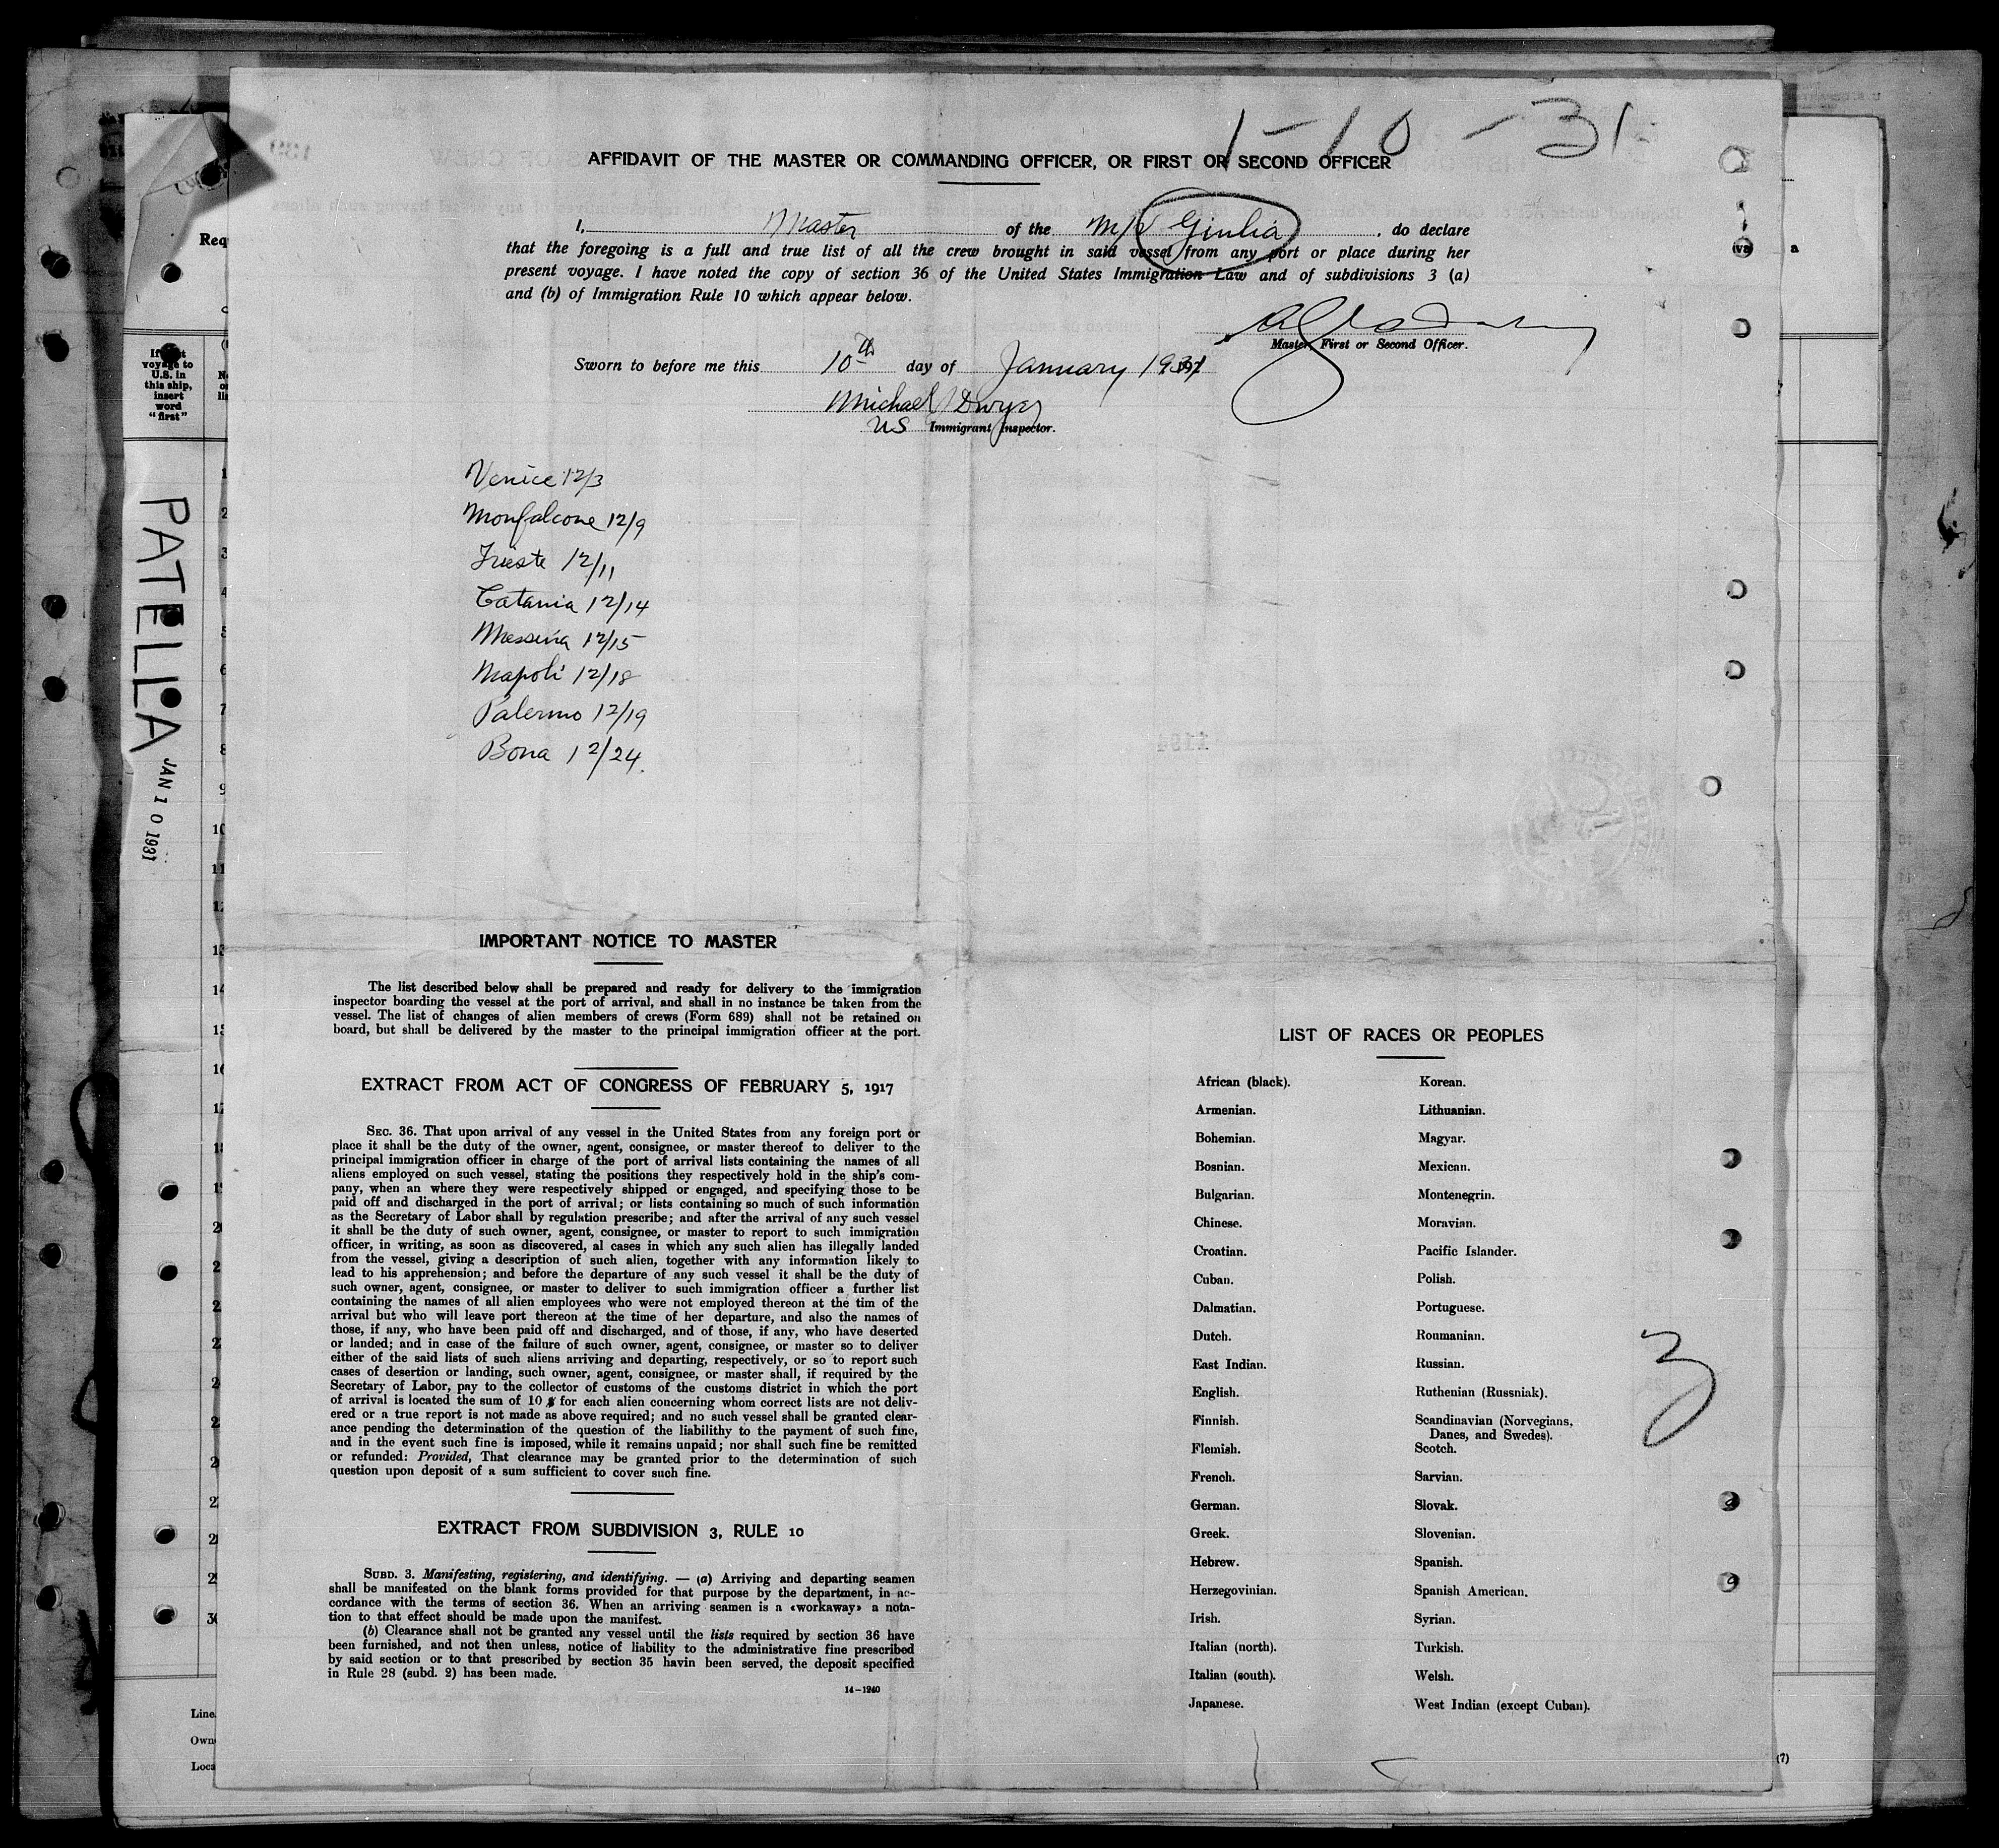 1-10-31
AFFIDAVIT OF THE MASTER OR COMMANDING OFFICER, OR FIRST OR SECOND OFFICER
I, Master of the M/V Giulia , do declare
that the foregoing is a full and true list of all the crew brought in said vessel from any port or place during her
present voyage. I have noted the copy of section 36 of the United States Immigration Law and of subdivisions 3 (a)
and (b) of Immigration Rule 10 which appear below.
Master, First or Second Officer.
Sworn to before me this 10th day of January 1931
Michael J Dwyer
US Immigrant Inspector.
Venice 12/3
Monfalcone 12/9
Trieste 12/11
Catania 12/14
Messina 12/15
Napoli 12/18
Palermo 12/19
Bona 12/24.
IMPORTANT NOTICE TO MASTER
The list described below shall be prepared and ready for delivery to the immigration
inspector boarding the vessel at the port of arrival, and shall in no instance be taken from the
vessel. The list of changes of alien members of crews (Form 689) shall not be retained on
board, but shall be delivered by the master to the principal immigration officer at the port.
EXTRACT FROM ACT OF CONGRESS OF FEBRUARY 5, 1917
SEC. 36. That upon arrival of any vessel in the United States from any foreign port or
place it shall be the duty of the owner, agent, consignee, or master thereof to deliver to the
principal immigration officer in charge of the port of arrival lists containing the names of all
aliens employed on such vessel, stating the positions they respectively hold in the ship's com-
pany, when an where they were respectively shipped or engaged, and specifying those to be
paid off and discharged in the port of arrival; or lists containing so much of such information
as the Secretary of Labor shall by regulation prescribe; and after the arrival of any such vessel
it shall be the duty of such owner, agent, consignee, or master to report to such immigration
officer, in writing, as soon as discovered, al cases in which any such alien has illegally landed
from the vessel, giving a description of such alien, together with any information likely to
lead to his apprehension; and before the departure of any such vessel it shall be the duty of
such owner, agent, consignee, or master to deliver to such immigration officer a further list
containing the names of all alien employees who were not employed thereon at the tim of the
arrival but who will leave port thereon at the time of her departure, and also the names of
those, if any, who have been paid off and discharged, and of those, if any, who have deserted
or landed; and in case of the failure of such owner, agent, consignee, or master so to deliver
either of the said lists of such aliens arriving and departing, respectively, or so to report such
cases of desertion or landing, such owner, agent, consignee, or master shall, if required by the
Secretary of Labor, pay to the collector of customs of the customs district in which the port
of arrival is located the sum of 10 $ for each alien concerning whom correct lists are not deliv-
ered or a true report is not made as above required; and no such vessel shall be granted clear-
ance pending the determination of the question of the liabilithy to the payment of such fine,
and in the event such fine is imposed, while it remains unpaid; nor shall such fine be remitted
or refunded: Provided, That clearance may be granted prior to the determination of such
question upon deposit of a sum sufficient to cover such fine.
EXTRACT FROM SUBDIVISION 3, RULE 10
SUBD. 3. Manifesting, registering, and identifying. — (a) Arriving and departing seamen
shall be manifested on the blank forms provided for that purpose by the department, in ac-
cordance with the terms of section 36. When an arriving seamen is a «workaway» a nota-
tion to that effect should be made upon the manifest.
(b) Clearance shall not be granted any vessel until the lists required by section 36 have
been furnished, and not then unless, notice of liability to the administrative fine prescribed
by said section or to that prescribed by section 35 havin been served, the deposit specified
in Rule 28 (subd. 2) has been made.
14-1240
LIST OF RACES OR PEOPLES
African (black). Korean.
Armenian. Lithuanian.
Bohemian. Magyar.
Bosnian. Mexican.
Bulgarian. Montenegrin.
Chinese. Moravian.
Croatian. Pacific Islander.
Cuban. Polish.
Dalmatian. Portuguese.
Dutch. Roumanian.
East Indian. Russian.
English. Ruthenian (Russniak).
Finnish. Scandinavian (Norvegians,
Danes, and Swedes).
Flemish. Scotch.
French. Sarvian.
German. Slovak.
Greek. Slovenian.
Hebrew. Spanish.
Herzegovinian. Spanish American.
Irish. Syrian.
Italian (north). Turkish.
Italian (south). Welsh.
Japanese. West Indian (except Cuban).
3
PATELLA
JAN 10 1931
voyage to
U.S. in
this ship,
insert
word
"first"